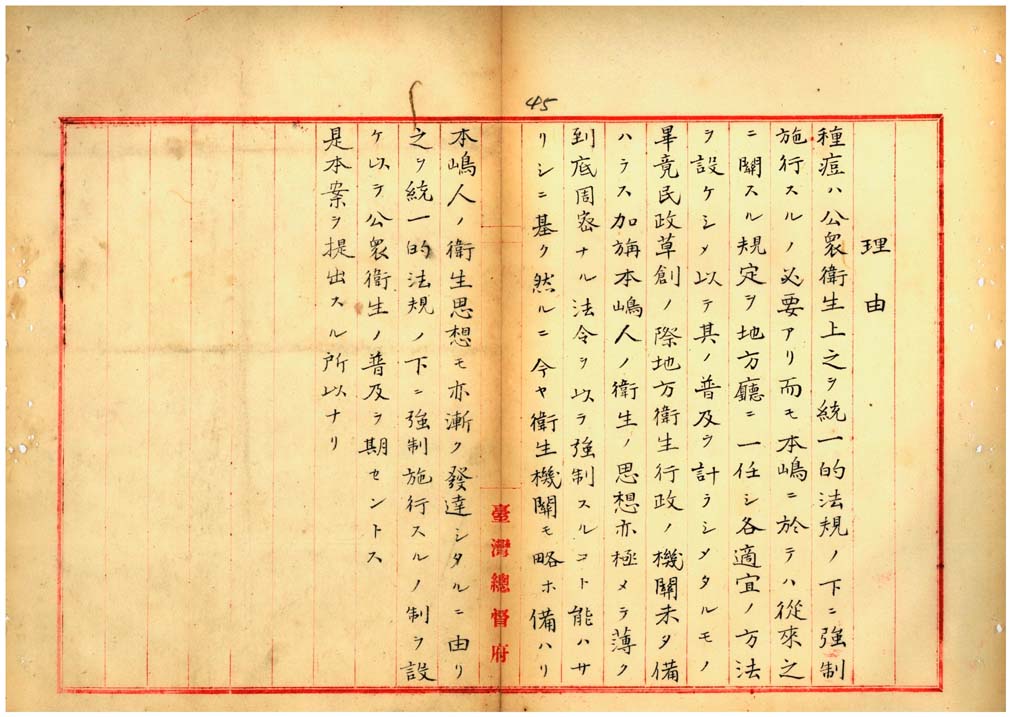 45
理由
種痘ハ公衆衛生上之ヲ統一的法規ノ下ニ強制
施行スルノ必要アリ而モ本嶋ニ於テハ從來之
ニ關スル規定ヲ地方廳ニ一任シ各適宜ノ方法
ヲ設ケシメ以テ其ノ普及ヲ計ラシメタルモノ
畢竟民政草創ノ際地方衛生行政ノ機關未タ備
ハラス加旃本嶋人ノ衛生ノ思想亦極メテ薄ク
到底周密ナル法令ヲ以テ強制スルコト能ハサ
リシニ基ク然ルニ今ヤ衛生機關モ略ホ備ハリ
臺灣總督府
本嶋人ノ衛生思想モ亦漸ク發達シタルニ由リ
之ヲ統一的法規ノ下ニ強制施行スルノ制ヲ設
ケ以テ公衆衛生ノ普及ヲ期セントス
是本案ヲ提出スル所以ナリ